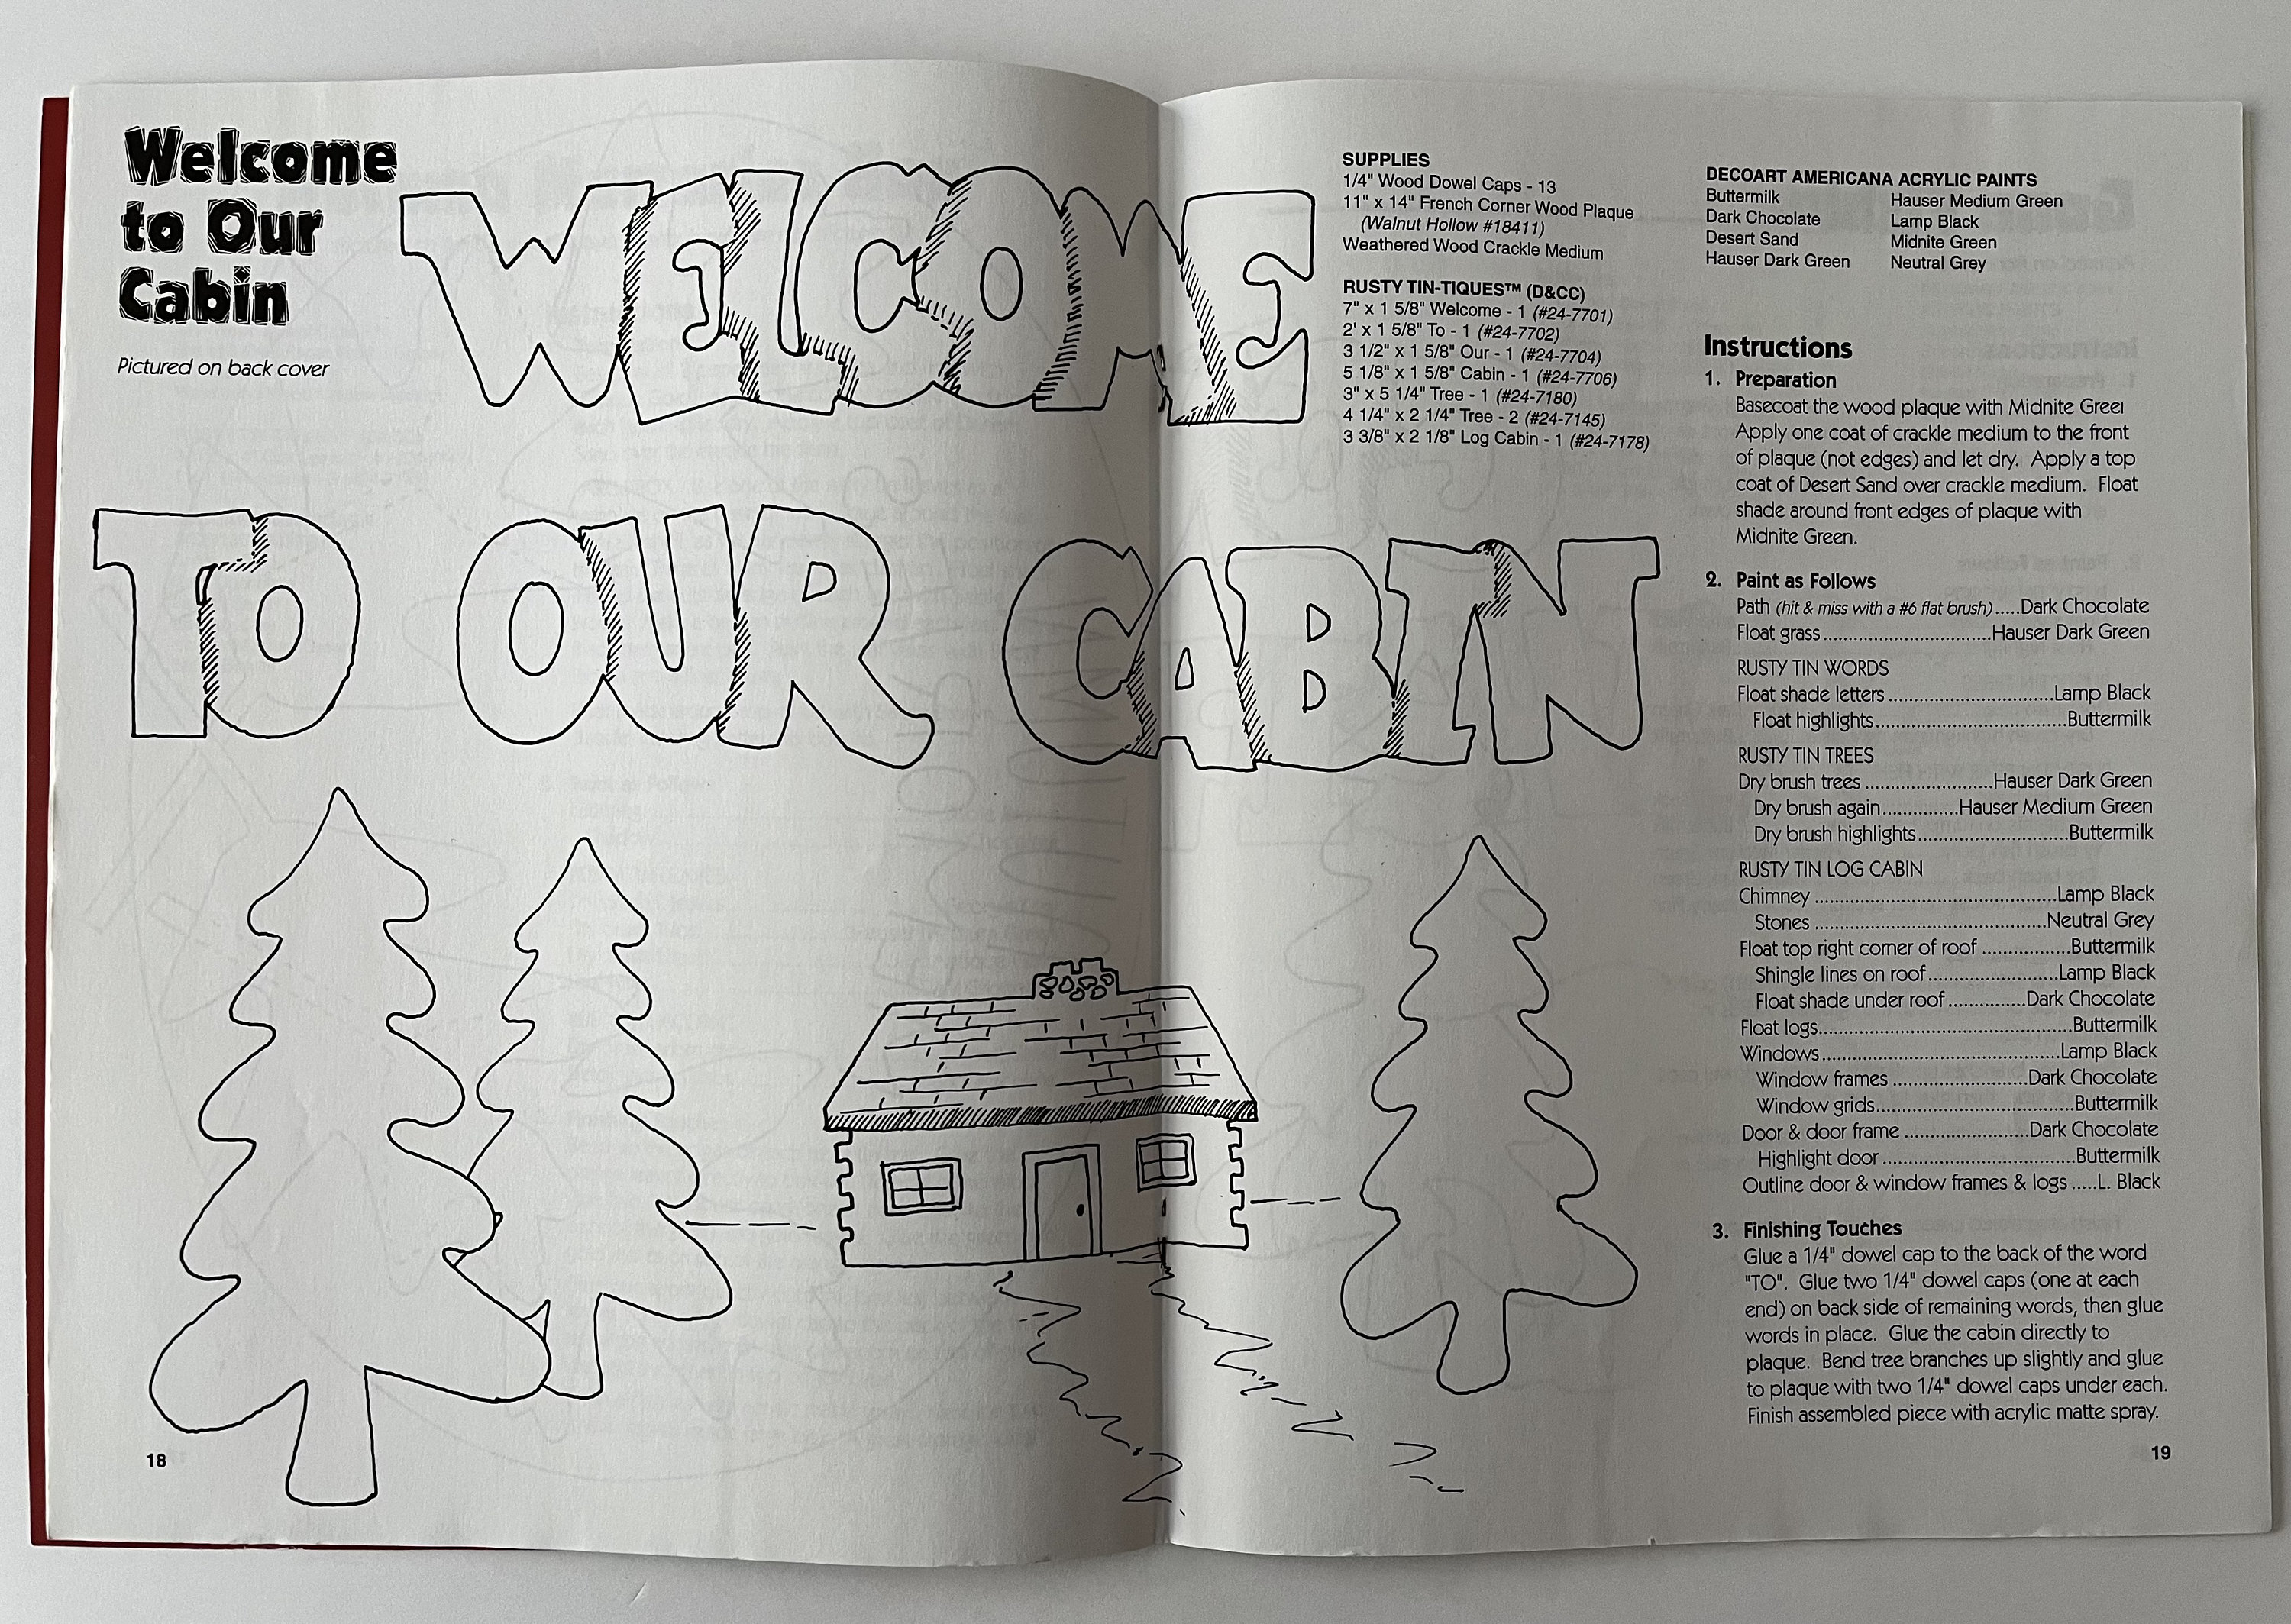 Welcome
to Our
Cabin
Pictured on back cover
WELCOME
TO OUR CABIN
18
SUPPLIES
1/4" Wood Dowel Caps - 13
11" x 14" French Corner Wood Plaque
(Walnut Hollow #18411)
Weathered Wood Crackle Medium
RUSTY TIN-TIQUES™ (D&CC)
7" x 1 5/8" Welcome - 1 (#24-7701)
2' x 1 5/8" To - 1 (#24-7702)
3 1/2" x 1 5/8" Our - 1 (#24-7704)
5 1/8" x 1 5/8" Cabin - 1 (#24-7706)
3" x 5 1/4" Tree - 1 (#24-7180)
4 1/4" x 2 1/4" Tree - 2 (#24-7145)
3 3/8" x 2 1/8" Log Cabin - 1 (#24-7178)
DECOART AMERICANA ACRYLIC PAINTS
Buttermilk Hauser Medium Green
Dark Chocolate Lamp Black
Desert Sand Midnite Green
Hauser Dark Green Neutral Grey
Instructions
1. Preparation
Basecoat the wood plaque with Midnite Greei
Apply one coat of crackle medium to the front
of plaque (not edges) and let dry. Apply a top
coat of Desert Sand over crackle medium. Float
shade around front edges of plaque with
Midnite Green.
2. Paint as Follows
Path (hit & miss with a #6 flat brush).....Dark Chocolate
Float grass....................................Hauser Dark Green
RUSTY TIN WORDS
Float shade letters ...................................Lamp Black
Float highlights.........................................Buttermilk
RUSTY TIN TREES
Dry brush trees ...........................Hauser Dark Green
Dry brush again...............Hauser Medium Green
Dry brush highlights................................Buttermilk
RUSTY TIN LOG CABIN
Chimney ...................................................Lamp Black
Stones .................................................Neutral Grey
Float top right corner of roof ..................Buttermilk
Shingle lines on roof............................Lamp Black
Float shade under roof ................Dark Chocolate
Float logs......................................................Buttermilk
Windows..................................................Lamp Black
Window frames .............................Dark Chocolate
Window grids..........................................Buttermilk
Door & door frame ..........................Dark Chocolate
Highlight door .........................................Buttermilk
Outline door & window frames & logs .....L. Black
3. Finishing Touches
Glue a 1/4" dowel cap to the back of the word
"TO". Glue two 1/4" dowel caps (one at each
end) on back side of remaining words, then glue
words in place. Glue the cabin directly to
plaque. Bend tree branches up slightly and glue
to plaque with two 1/4" dowel caps under each.
Finish assembled piece with acrylic matte spray.
19